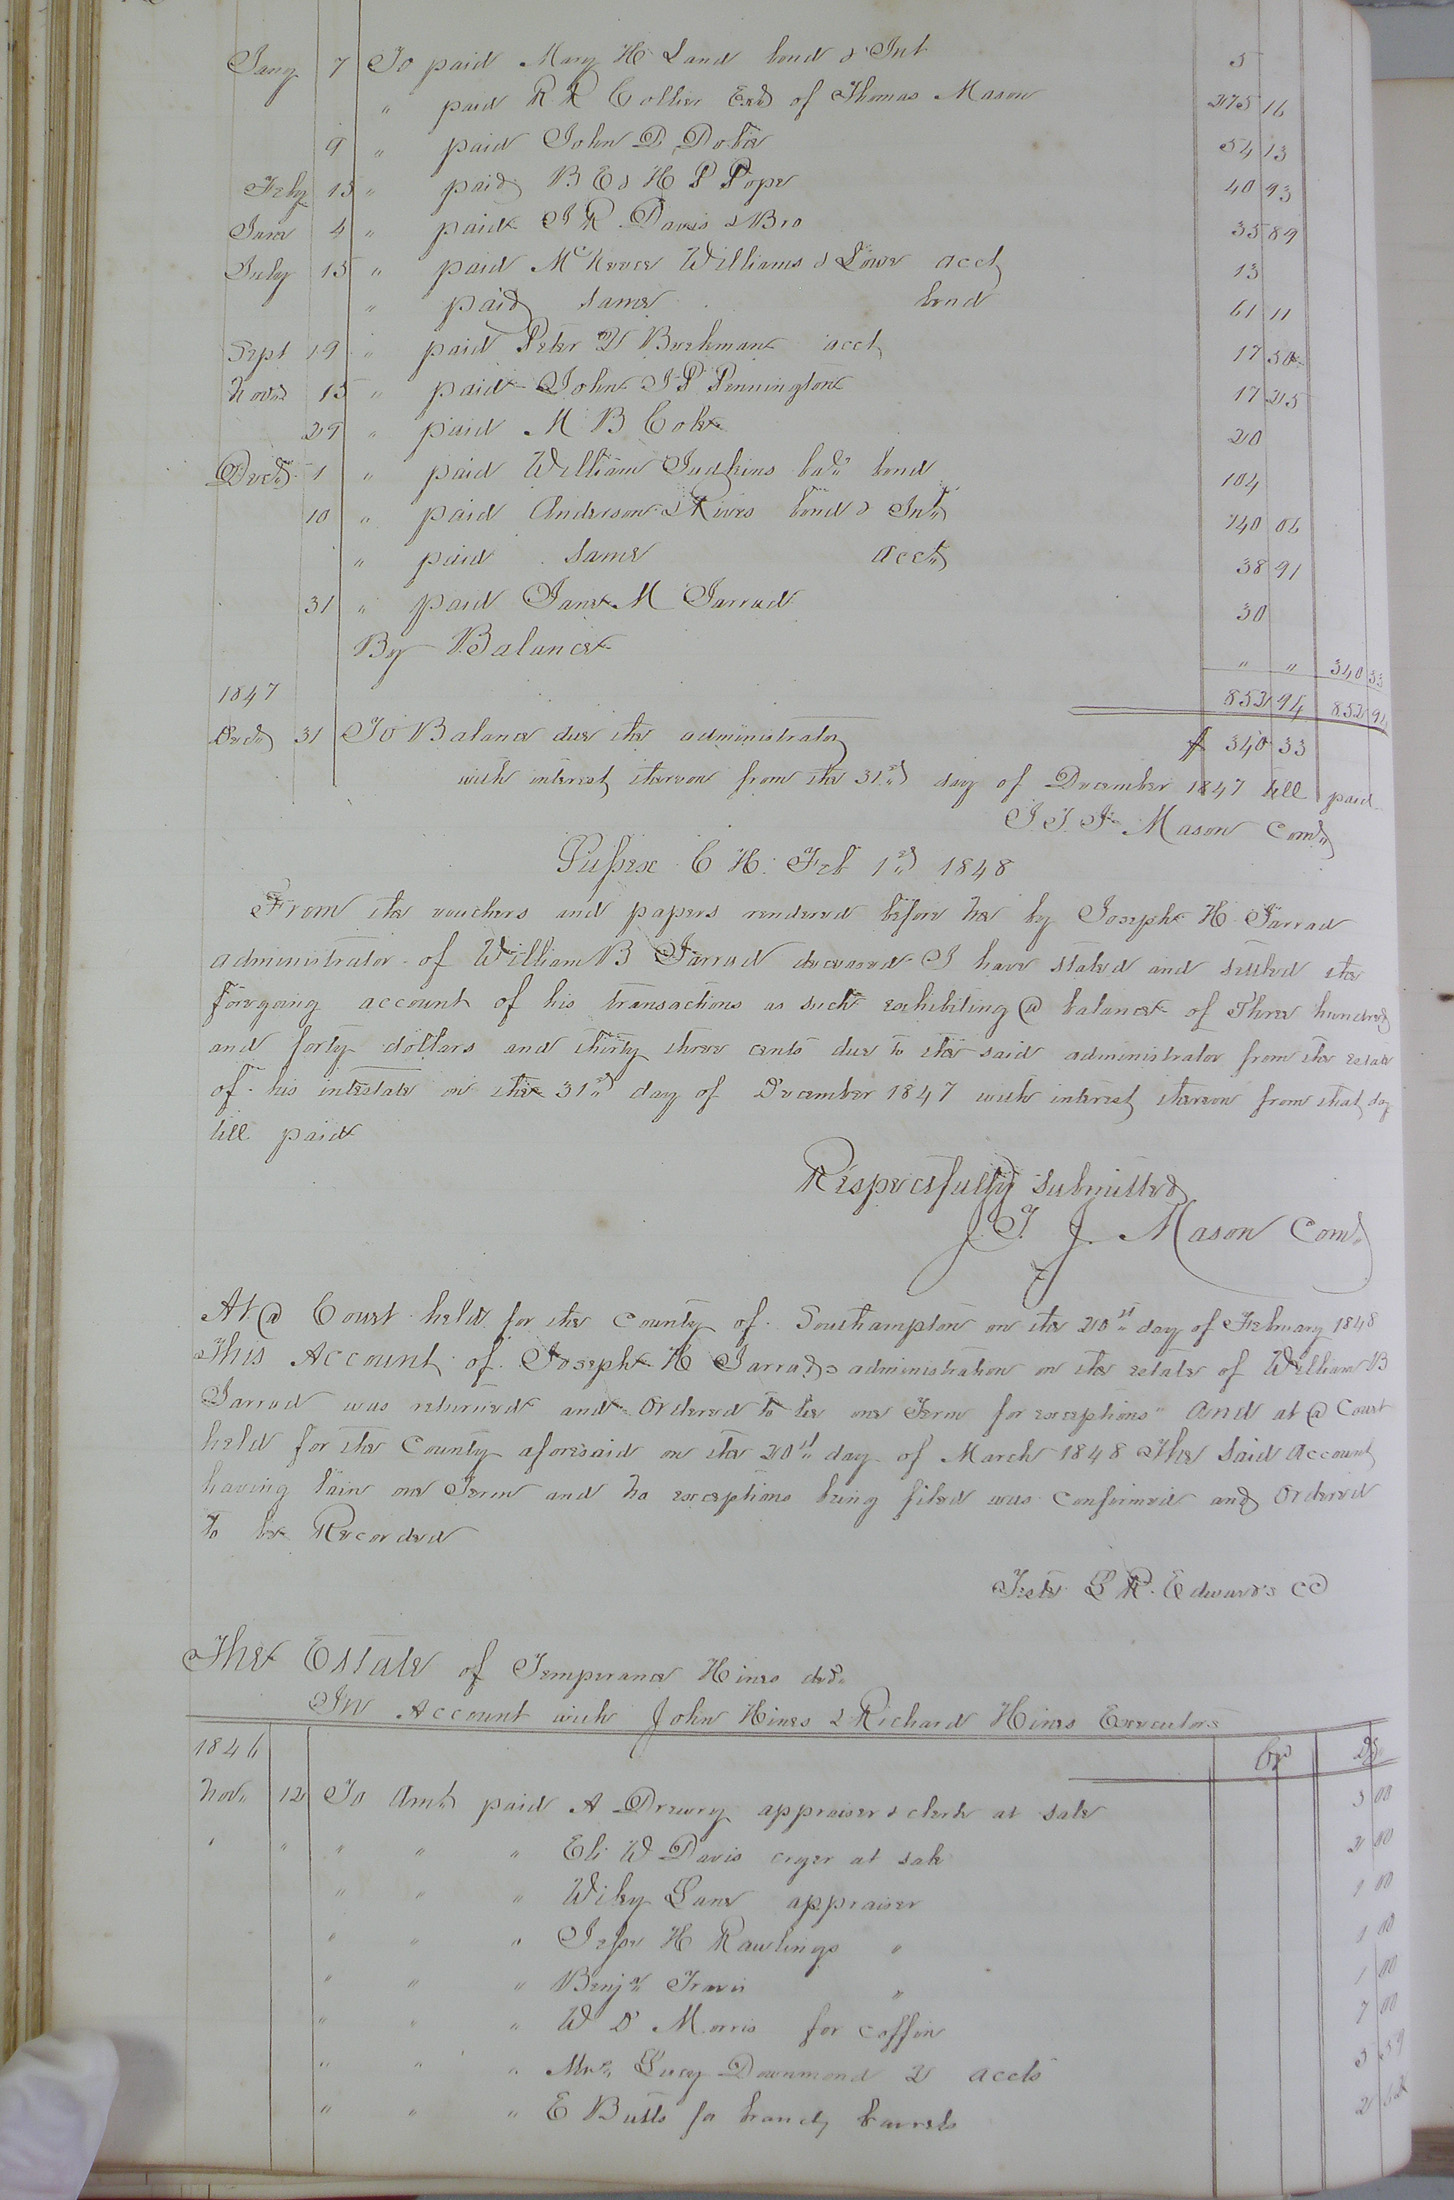 Jany 7 To paid Mary H Land bond & Int 5
" paid R R Collier Exd of Thomas Mason 275 16
9 " paid John D Dobie 54 13
Feby 15 " paid B E & H P Pope 40 93
June 4 " paid J R Davis & Bro 35 89
July 15 " paid McKeever Williams & Lowe acct 13
" paid same bond 61 11
Sept 19 " paid Peter D acct 17 50
Novr 15 " paid John J P Pennington 17 25
29 " paid M B Coke 20
Decr 1 " paid William Judkins bal bond 104
10 " paid Anderson & Rives bond & Int 140 06
" paid same acct 38 91
31 " paid Jane M Jarrad 30
By Balance " " 340 33
1847 852 94 852 94
Decr 31 To Balance due the administrator $ 340 33
with interest thereon from the 31st day of December 1847 till paid
J. T. J. Mason Comr
Sussex C H. Feb 1st 1848
From the vouchers and papers rendered before me by Joseph H Jarrad
administrator of William B Jarrad deceased I have stated and settled the
foregoing account of his transactions as such exhibiting a balance of Three hundred
and forty dollars and thirty three cents due to the said administrator from the estate
of his intestate on the 31st day of December 1847 with interest thereon from that day
till paid
Respectfully submitted
J. T. J. Mason Comr
At a Court held for the County of Southampton on the 20st day of February 1848
This Account of Joseph H Jarrads administration on the estate of William B
Jarrad was returned and Ordered to lie one Term for exceptions" And at a Court
held for the County aforesaid on the 20st day of March 1848 The said Account
having lain one Term and no exceptions being filed was confirmed and Ordered
to be Recorded
Teste L R. Edwards CC
The Estate of Temperance Hines decd
In Account with John Hines & Richard Hines Executors
1846 Cr Dr
Novr 12 To Amt paid A Drewry appraiser & clerk at sale 3 00
" " " " " Eli W Davis cryer at sale 2 00
" " " Wiley Lane appraiser 1 00
" " " Jesse H Rawlings " 1 00
" " " Benjn Travis " 1 00
" " " W D Morris for coffin 7 00
" " " Mrs Lucy Drummond 2 accts 3 59
" " " E Butts for brandy barrels 2